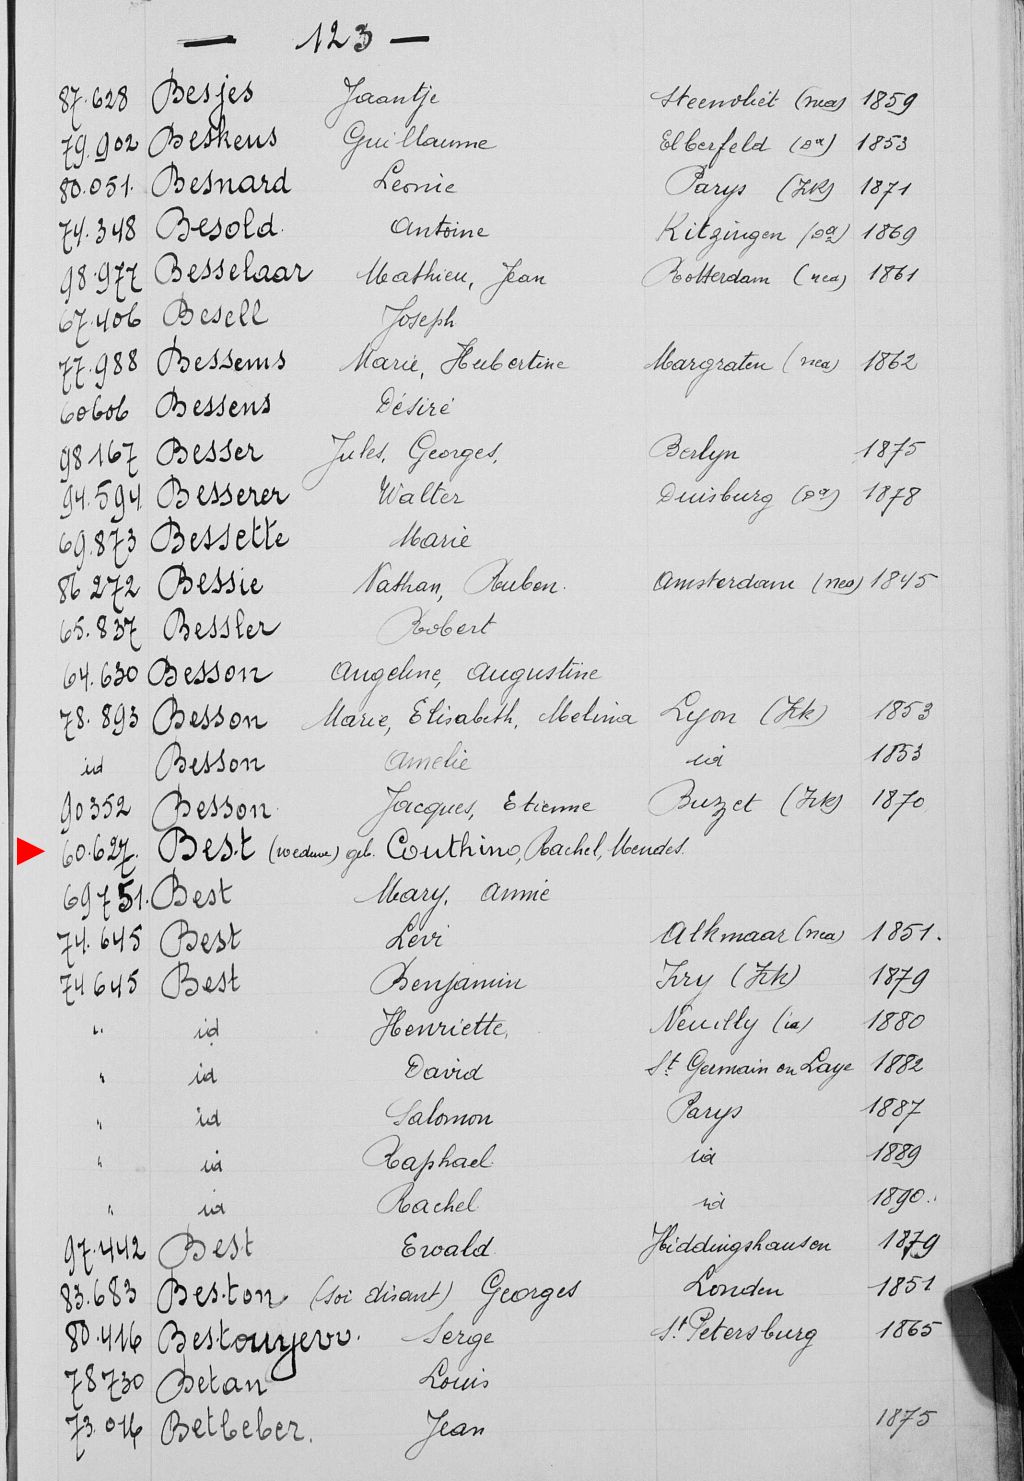 — 123 —
87.628 Besjes Jaantje Steenvliet (nea) 1859
79.902 Beskens Guillaume Elberfeld (Da) 1853
80.051. Besnard Leonie Parys (Frk) 1871
74.348 Besold. Antoine Kitzingen (Da) 1869
98.977 Besselaar Mathieu, Jean Rotterdam (nea) 1861
67.406 Besell Joseph
77.988 Bessems Marie, Hubertine Margraten (nea) 1862
60606 Bessens Désiré
98167 Besser Jules, Georges, Berlyn 1875
94.594 Besserer Walter Duisburg (Da) 1878
69.873 Bessette Marie
86272 Bessie Nathan, Ruben. Amsterdam (nea) 1845
65.837 Bessler Robert
64.630 Besson Angeline, Augustine
78.893 Besson Marie, Elisabeth, Melina Lyon (Frk) 1853
id Besson Amelie id 1853
90352 Besson Jacques, Etienne Buzet (Frk) 1870
60.627. Best (weduwe) geb. Couthino, Rachel, Mendes.
69751. Best Mary, Annie
74.645 Best Levi Alkmaar (nea) 1851.
74645 Best Benjamin Ivry (Frk) 1879
" id Henriette, Neuilly (id) 1880
" id David St Germain en Laye 1882
" id Salomon Parys 1887
" id Raphael id 1889
" id Rachel id 1890.
97.442 Best Ewald Hiddingshausen 1879
83.683 Beston (soi disant) Georges Londen 1851
80.416 Serge St Petersburg 1865
78730 Betan Louis
73.016 Betbeber. Jean 1875